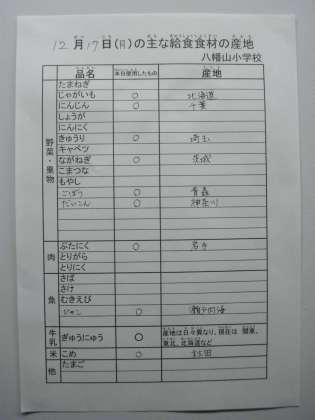 12月17日(月)の主な給食食材の産地
八幡山小学校
品名 本日使用したもの 産地
野菜・果物
たまねぎ
じゃがいも ○ 北海道
にんじん ○ 千葉
しょうが
にんにく
きゅうり ○ 埼玉
キャベツ
ながねぎ ○ 茨城
こまつな
もやし
ごぼう ○ 青森
だいこん ○ 神奈川
肉
ぶたにく ○ 岩手
とりがら
とりにく
魚
さば
さけ
むきえび
ジャコ ○ 瀬戸内海
牛乳 ぎゅうにゅう ○ 産地は日々異なり、現在は 関東、
東北、北海道など
米 こめ ○ 秋田
他 たまご